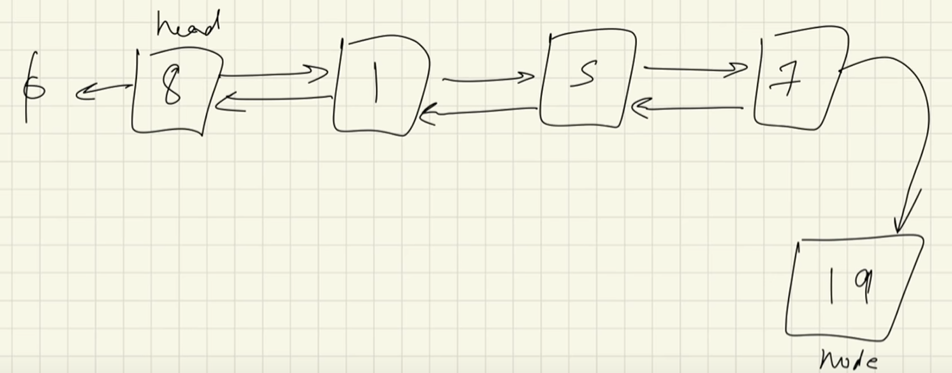 head
ϕ 8 1 5 7
19
Node